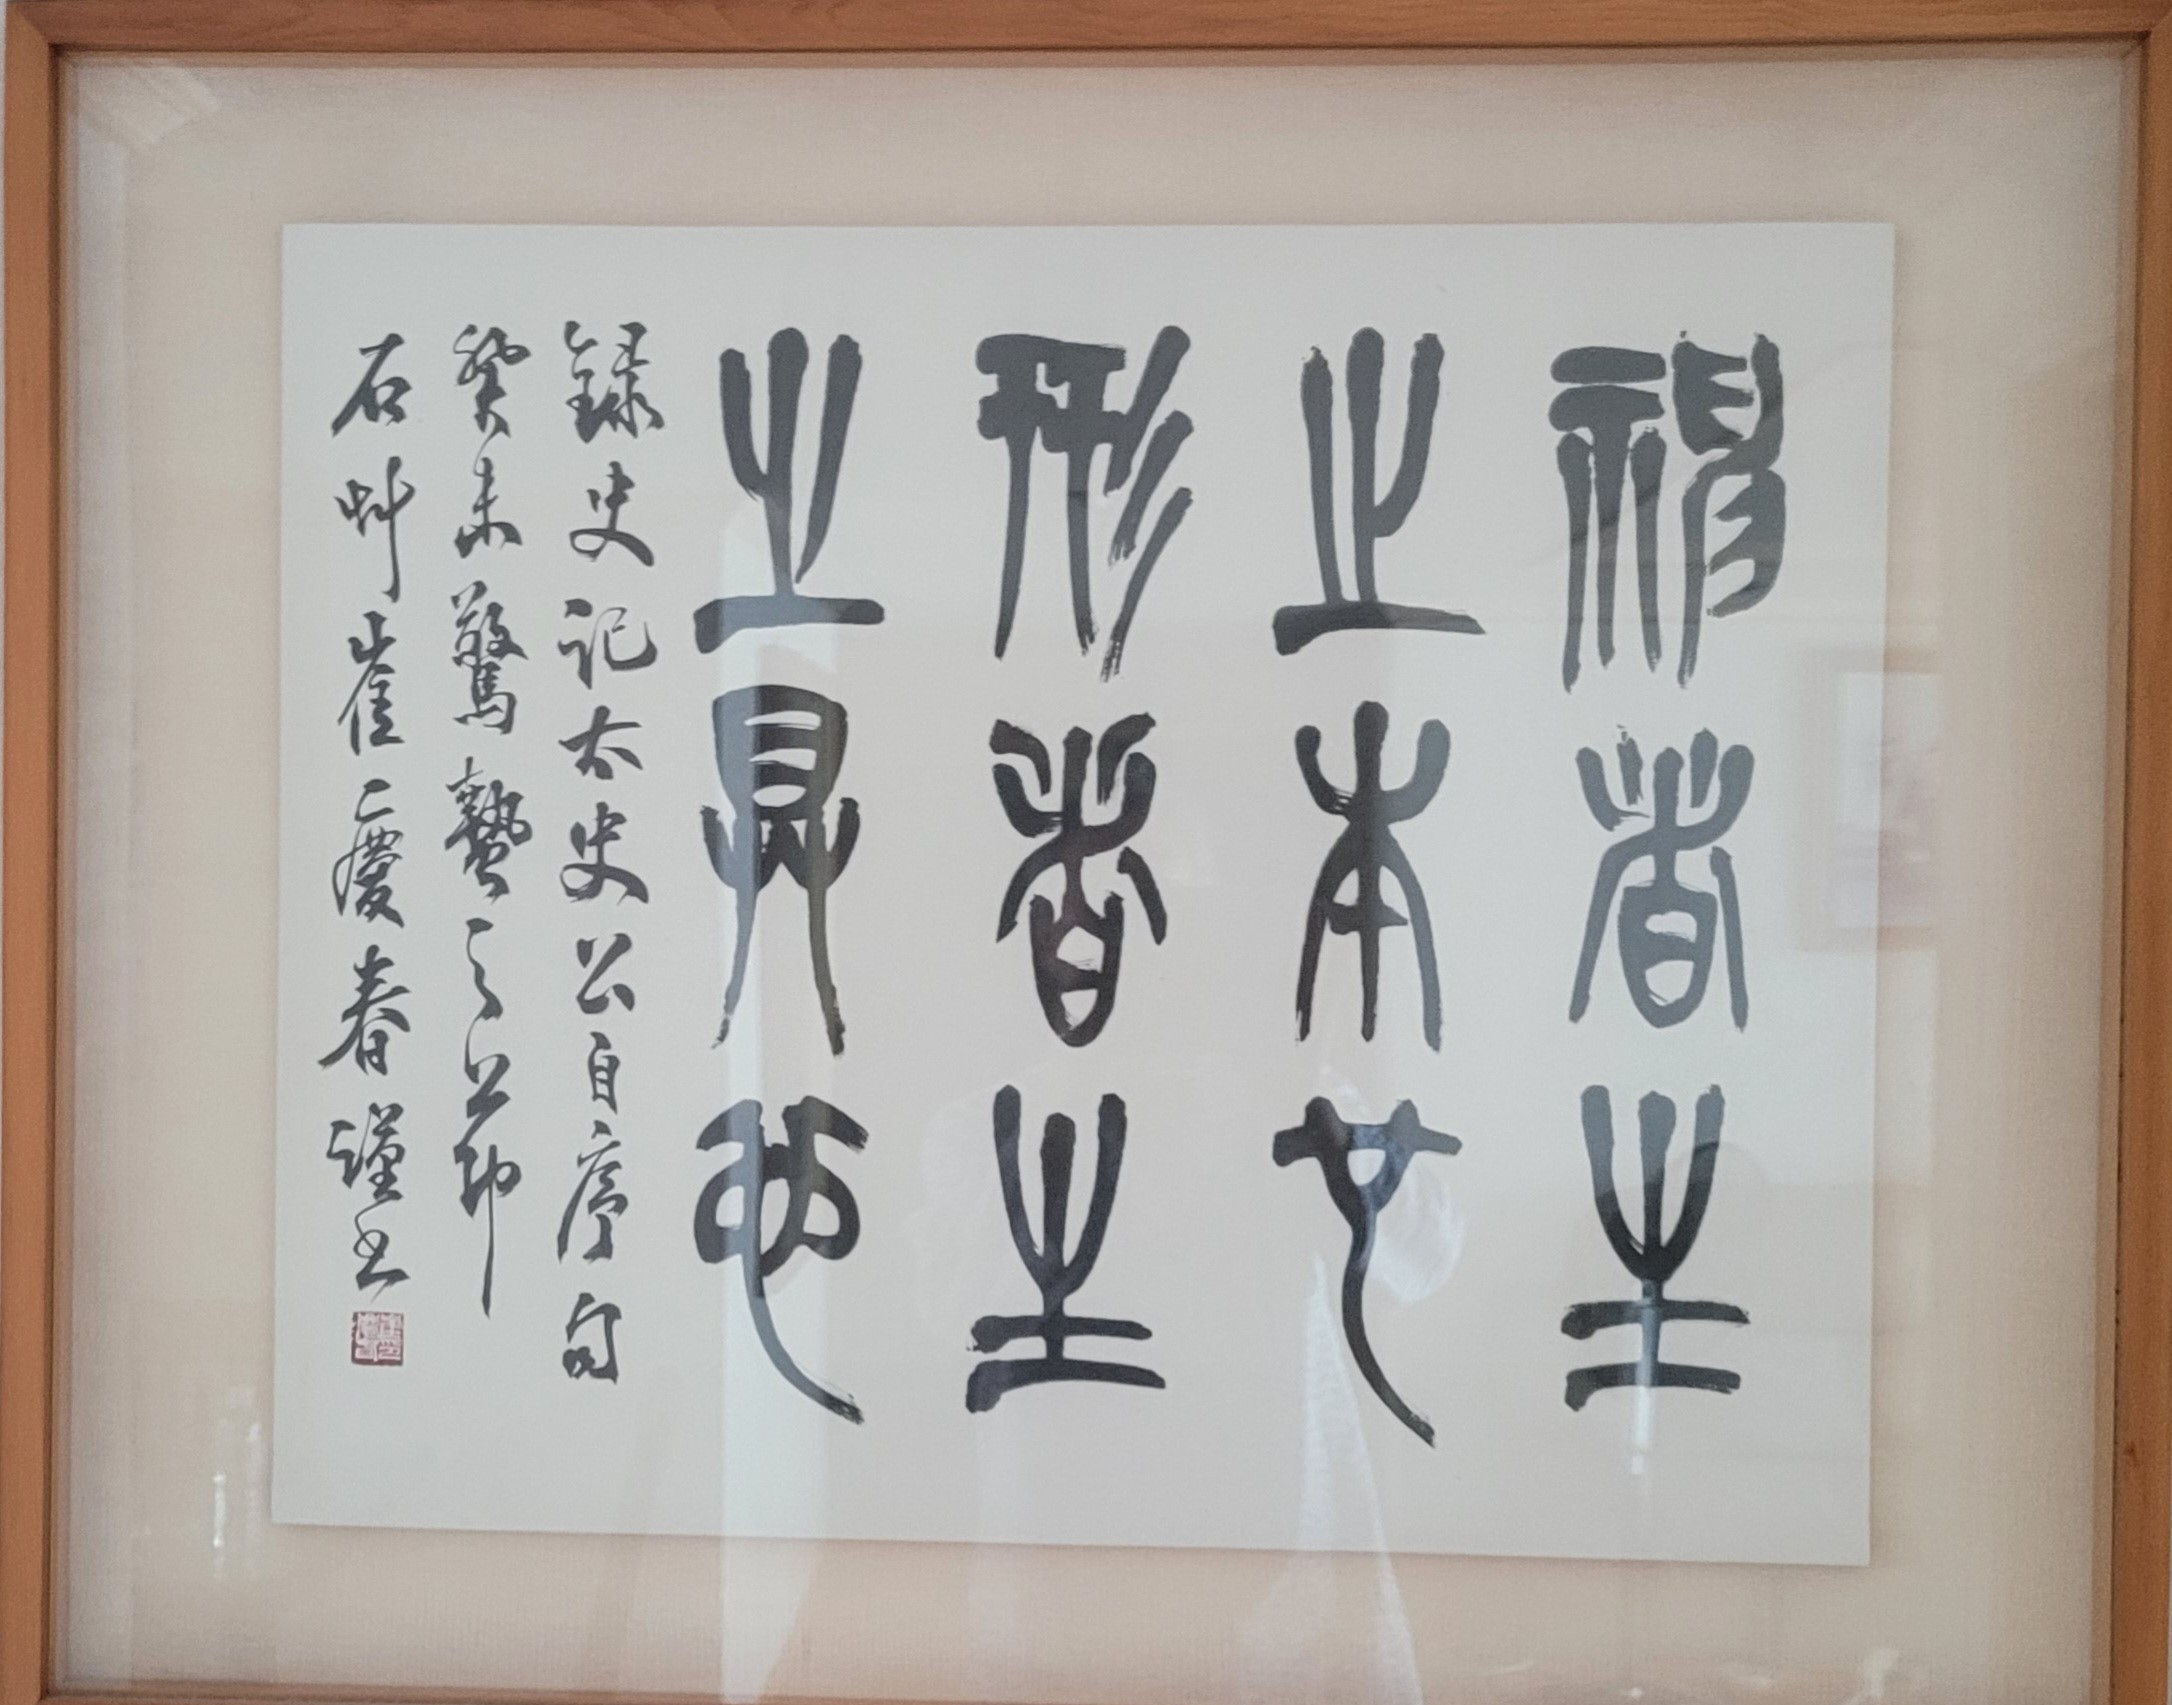 神者生
之本也
形者生
之具也
錄史記太史公自序句
癸未驚蟄之節
石艸崔慶春謹書